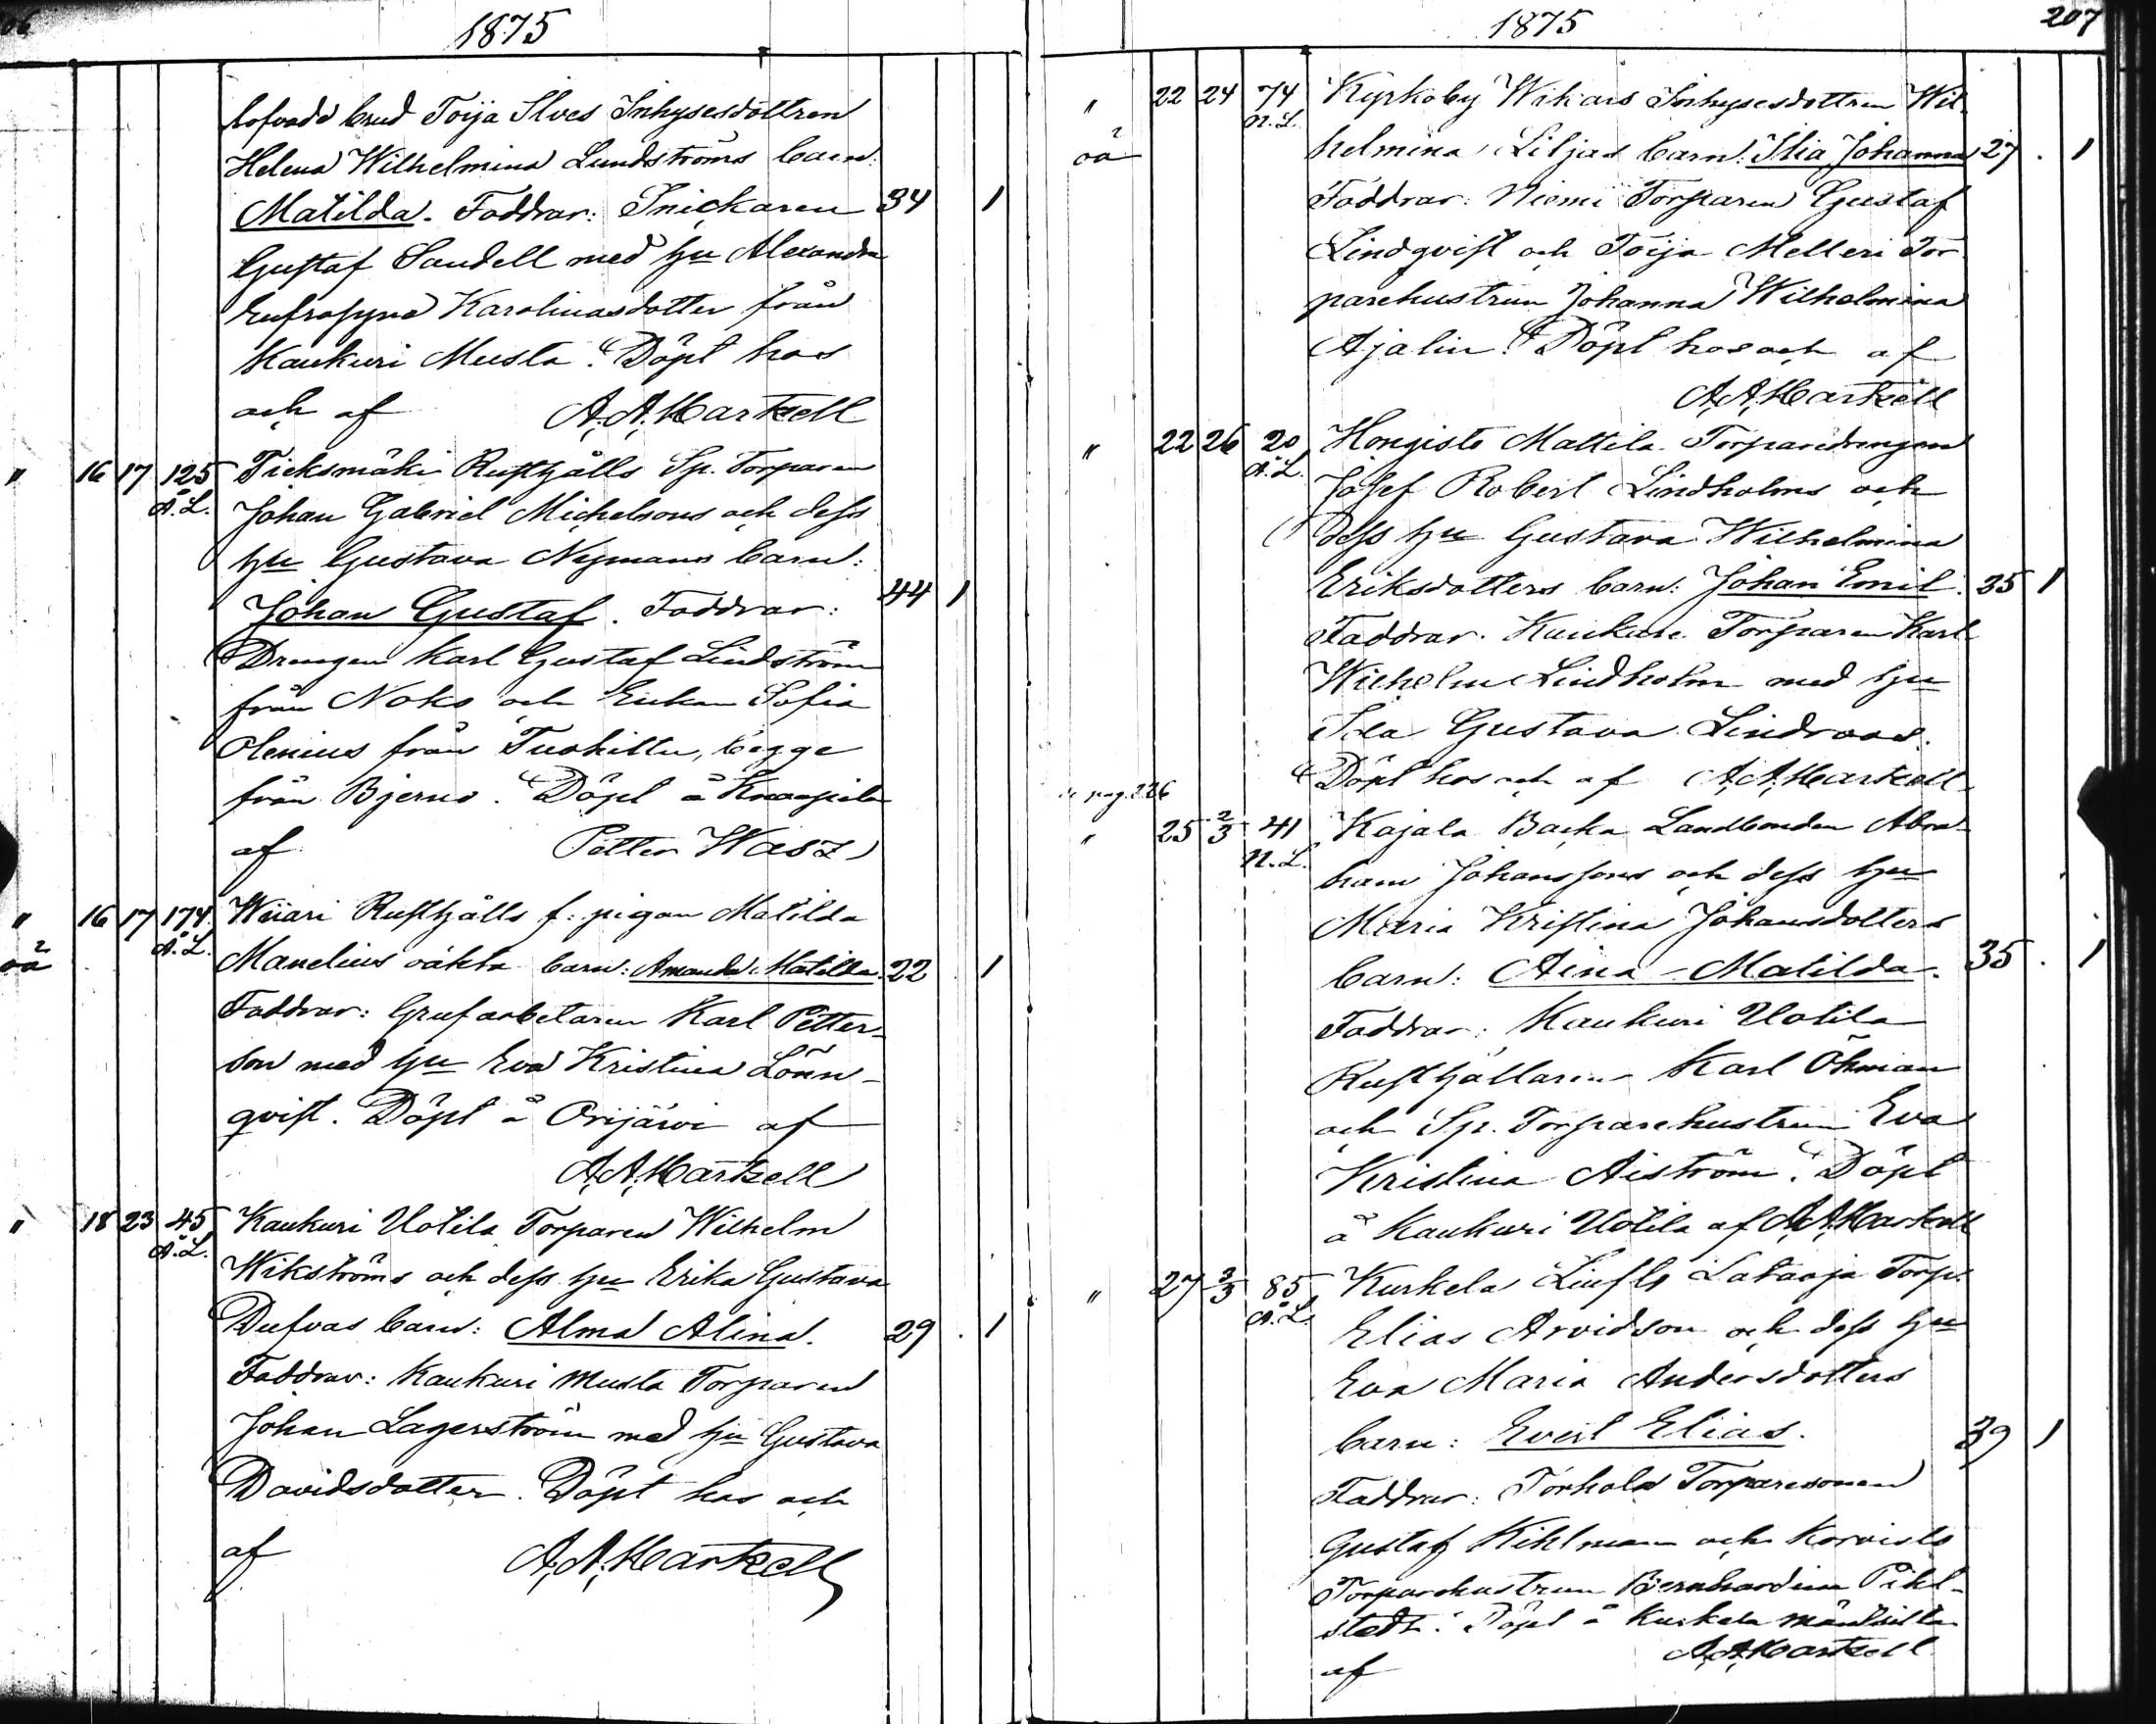 06
1875
lofvade brud Toija Ilves Inhysesdottren
Helena Wilhelmina Lundströms barn:
Matilda. Faddrar: Snickaren 34 1
Gustaf Sandell med hu Alexandra
Eufrosyna Karolinasdotter från
Kaukuri Musta. Döpt hos
och af A. A. Hartzell
" 16 17 125 Ticksmäki Rusthålls Sp. Torparen
A.L. Johan Gabriel Michelsons och dess
hu Gustava Nymans barn:
Johan Gustaf. Faddrar: 44 1
Drengen Karl Gustaf Lindström
från Noks och Enkan Sofia
Olenius från Tuohittu, begge
från Bjerno. Döpt å Knaapila
af Petter Wasz
" 16 17 174 Wiiari Rusthålls f: pigan Matilda
oä A.L. Manelius oäkta barn: Amanda Matilda. 22 1
Faddrar: Grufarbetaren Karl Petter-
son med hu Eva Kristina Lönn-
qvist. Döpt å Orijärvi af
A. A. Hartzell
" 18 23 45 Kaukuri Uotila Torparen Wilhelm
A.L. Wikströms och dess hu Erika Gustava
Dufvas barn: Alma Alina. 29 . 1
Faddrar: Kaukuri Musta Torparen
Johan Lagerström med hu Gustava
Davidsdotter. Döpt hos och
af A. A. Hartzell
1875
207
" 22 24 74 Kyrkoby Wikars Inhysesdottren Wil-
oä N.L. helmina Liljas barn: Ilia Johanna 27 . 1
Faddrar: Niemi Torparen Gustaf
Lindqvist och Toija Melleri Tor
parehustrun Johanna Wilhelmina
Ajalin. Döpt hos och af
A. A. Hartzell
" 22 26 20 Hongisto Mattila Torparedrengen
A.L. Josef Robert Lindholms och
dess hu Gustava Wilhelmina
Eriksdotters barn: Johan Emil. 25 1
Faddrar: Kaukuri Torparen Karl
Wilhelm Lindholm med hu
Ida Gustava Lindroos.
Döpt hos och af A. A. Hartzell
pag. 226
" 25 2/3 41 Kajala Backa Landbonden Abra-
N.L. ham Johanssons och dess hu
Maria Kristina Johansdotters
barn: Aina Matilda. 35 . 1
Faddrar: Kaukuri Uotila
Rusthållaren Karl Öhman
och Sp. Torparehustrun Eva
Kristina Aiström. Döpt
å Kaukuri Uotila af A. A. Hartzell
" 27 2/3 85 Kurkela Latoaja Torp.
A.L. Elias Arvidson och dess hu
Eva Maria Andersdotters
barn: Evert Elias. 39 1
Faddrar: Torhola Torparesonen
Gustaf Kihlman och Korvisto
Torparehustrun Bernhardina Pihl-
stedt. Döpt å Kurkela
af A. A. Hartzell